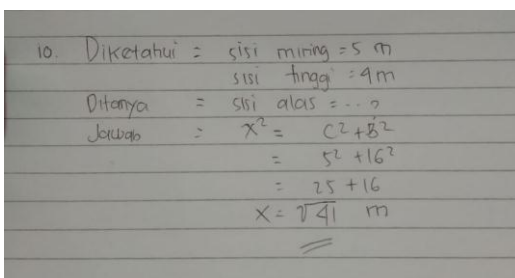 10. Diketahui = sisi miring = 5 m
sisi tinggi = 4m
Ditanya = sisi alas = ...?
Jawab : x² = C² + B²
= 5² + 16²
= 25 + 16
x = √41 m